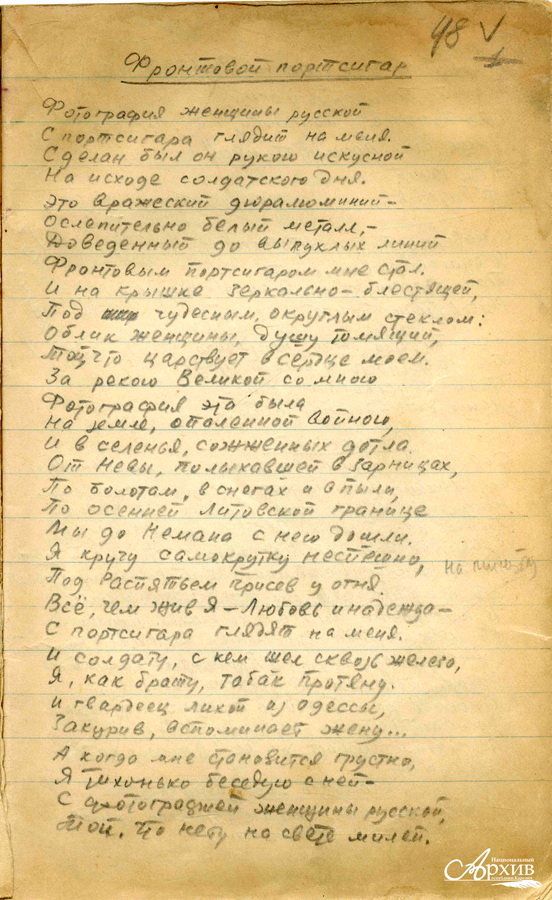 48 V
Фронтовой портсигар
Фотография женщины русской
С портсигара глядит на меня.
Сделан был он рукою искусной
На исходе солдатского дня.
Это вражеский дюралюминий –
Ослепительно белый металл, –
Доведенный до выпуклых линий
Фронтовым портсигаром мне стал.
И на крышке зеркально-блестящей,
Под чудесным, округлым стеклом:
Облик женщины, душу томящий,
Той, что царствует в сердце моем.
За рекою Великой со мною
Фотография эта была
На земле, опаленной войною,
И в селеньях, сожженных дотла.
От Невы, полыхавшей в зарницах,
По болотам, в снегах и в пыли,
По осенней Литовской границе
Мы до Немана с нею дошли.
Я кручу самокрутку неспешно,
Под Распятьем присев у огня
Всё, чем жив я – Любовь и надежда –
С портсигара глядят на меня.
И солдату, с кем шел сквозь железо,
Я, как брату, табак протяну.
И гвардеец лихой из Одессы,
Закурив, вспоминает жену...
А когда мне становится грустно,
Я тихонько беседую с ней –
С фотографией женщины русской,
Той, что нету на свете милей.
Национальный
Архив
Республики Карелия